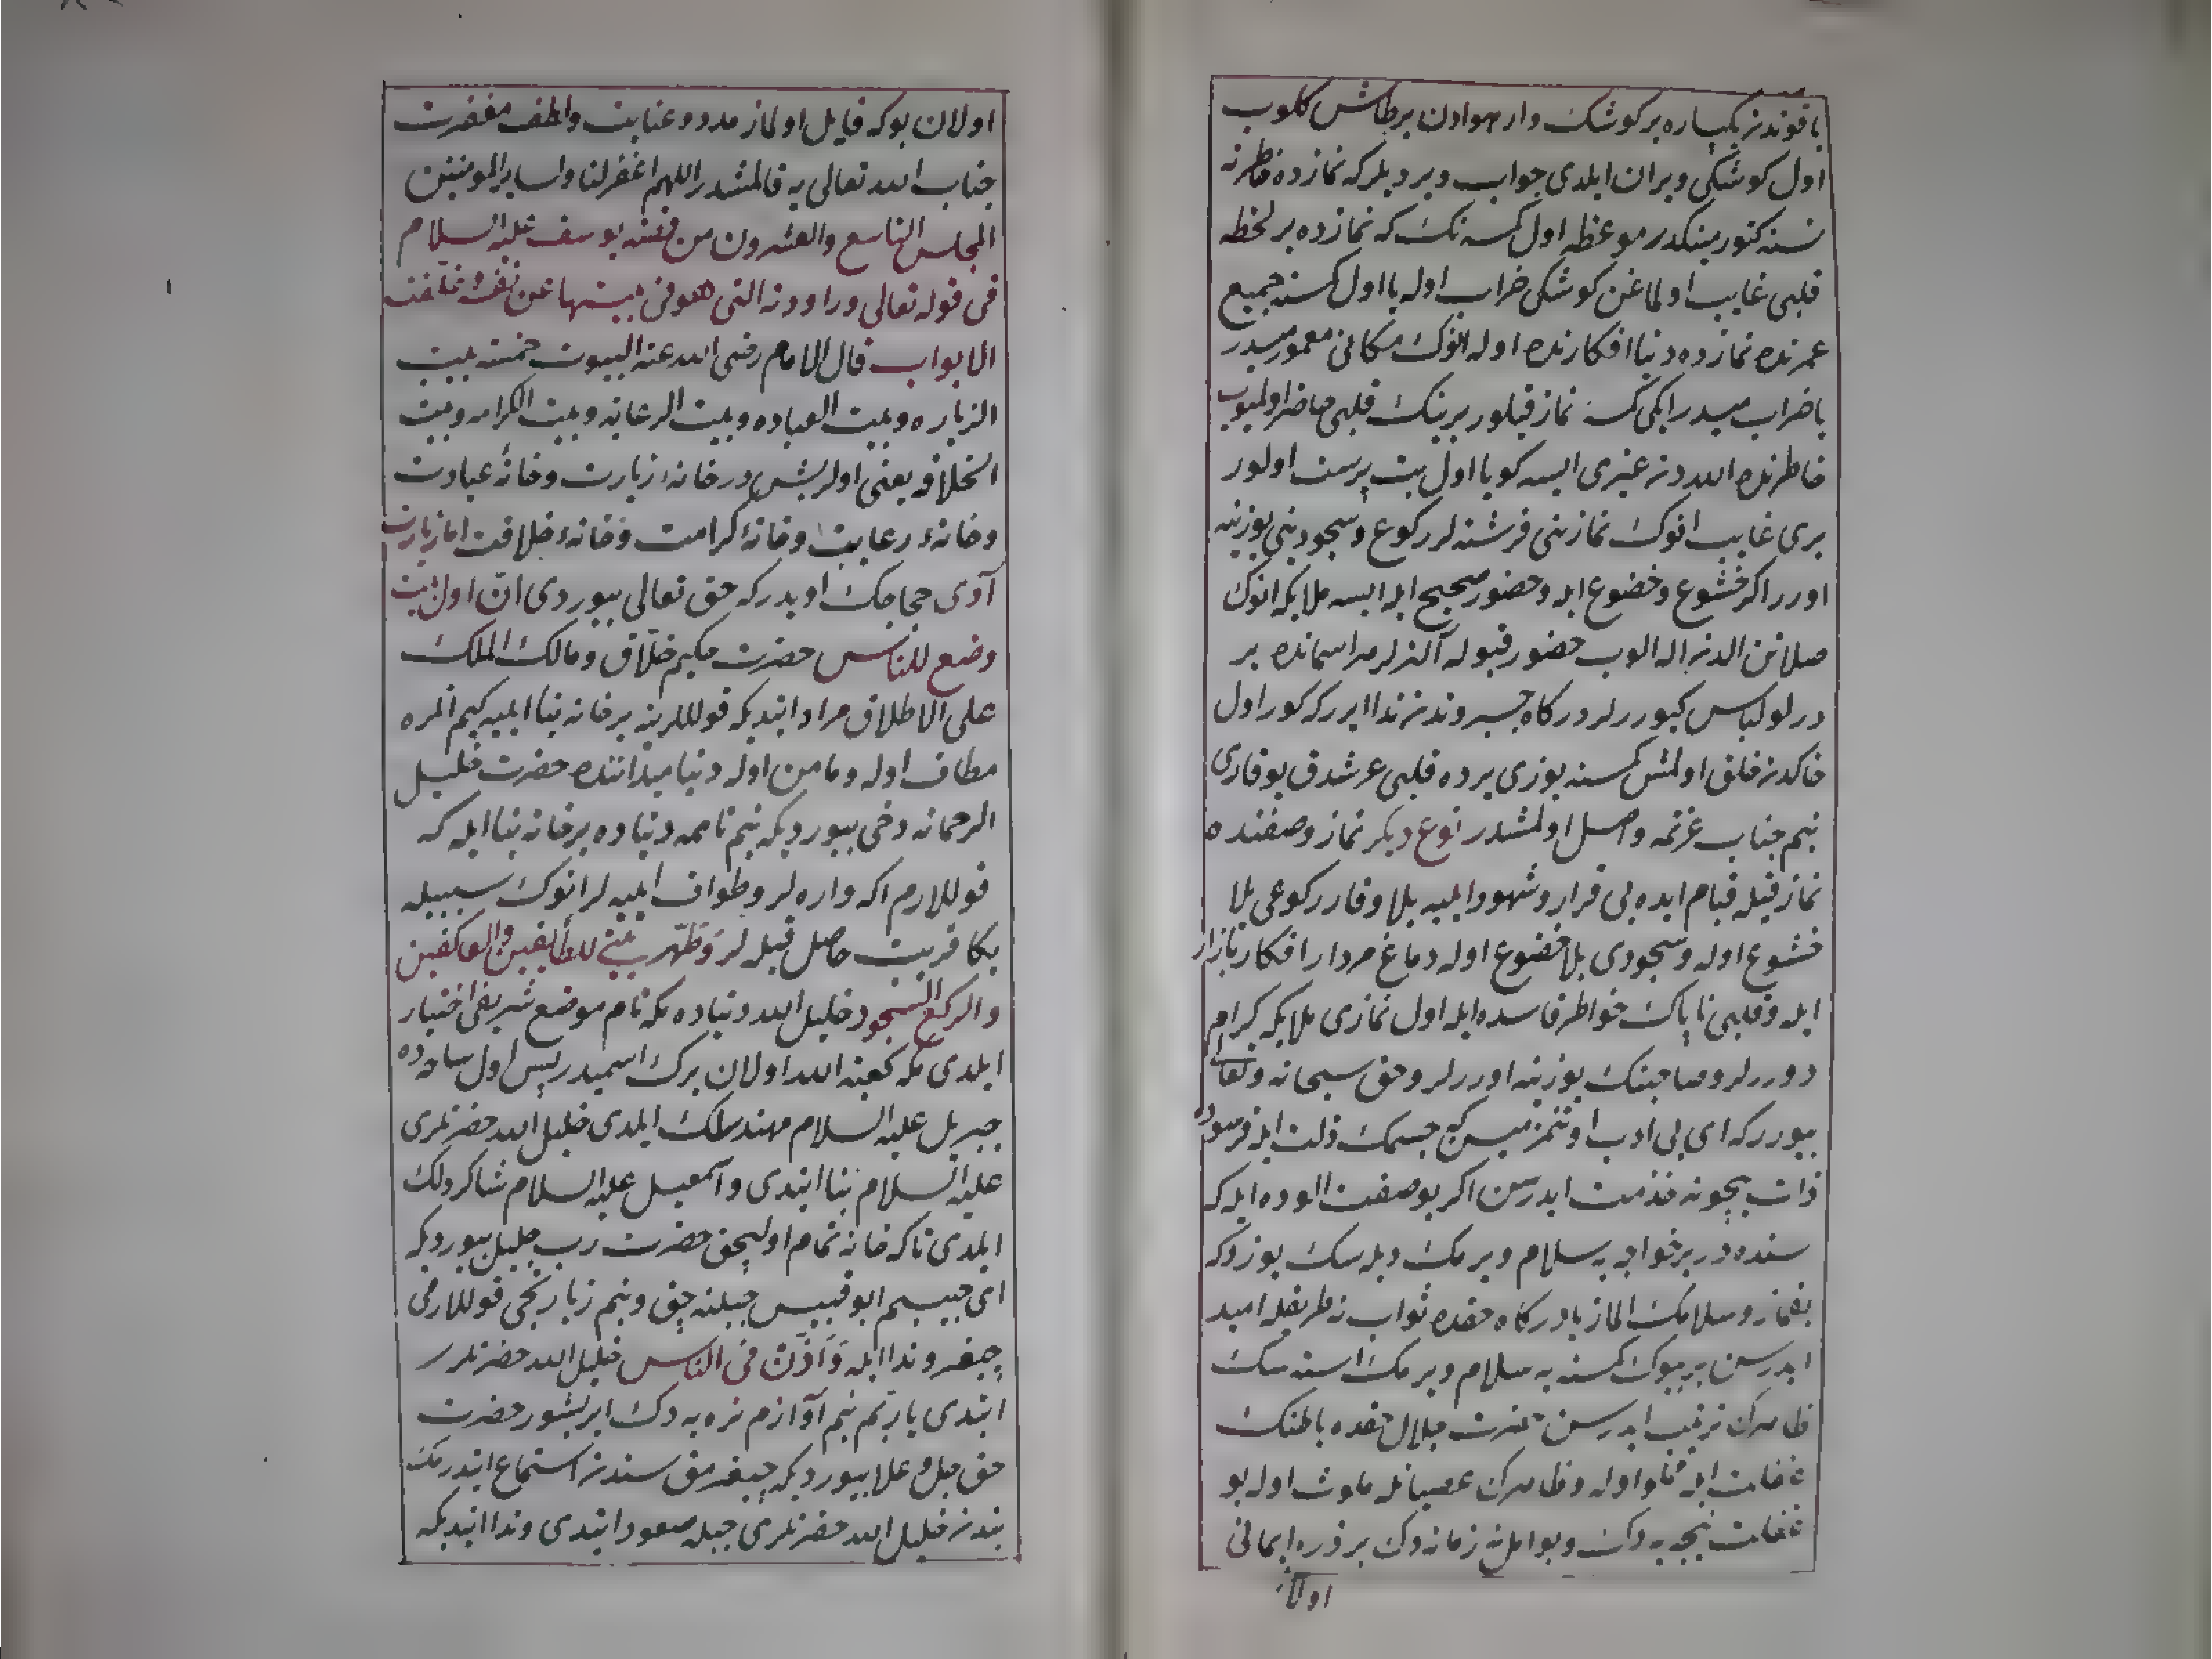 یاقوندن یکپاره بر کوشک وار هوادن بر طاش کلوب
اول کوشکی ویران ایلدی جواب ویردیلر که نمازده خاطرنه
نسنه کتورمینکدر موعظه اول کسه نک که نمازده بر لحظه
قلبی غایب اولماغن کوشکی خراب اوله یا اول کسنه جمیع
عمرنده نمازده دنیا افکارنده اوله انوک مکانی معمورمیدر
یا خرابمیدر ایکی کسه نماز قیلور برینک قلبی حاضر اولمیوب
خاطرنده الله دن غیری ایسه کویا اول بت پرست اولور
بری غایب انوک نمازینی فرشته لر رکوع و سجودینی یوزینه
اورر اکر خشوع و خضوع ایله و حضور صحیح ایله ایسه ملایکه انوک
صلاتن الدن اله الوب حضور قبوله الترلر هر اسمانده بر
درلو لباس کیوررلر درکاه جبروتدن ندا ایررکه کور اول
خاکدن خلق اولمش کسنه یوزی یرده قلبی عرشدن یوقاری
بنم جناب عزتمه واصل اولمشدر نوع دیکر نماز وصفنده
نماز قیله قیام ایده بی قرار و شهود ایلیه بلا وقار رکوعی بلا
خشوع اوله و سجودی بلا خضوع اوله دماغ مردار افکار بازار
ایله و قلبی ناپاک خواطر فاسده ایله اول نمازی ملایکه کرام
دوررلر و صاحبنک یوزینه اوررلر و حق سبحانه و تعالی
بیوررکه ای بی ادب اوتنمزمیسن که جسمک ذلت ایله فرسوده
ذات بیچونه خذمت ایدرسن اکر بو صفت الوده ایله که
سنده در بر خواجه یه سلام ویرمک دیلرسک یوز دوکه
سلامک الماز یا درکاه حقده ثواب امید
ایدرسن بر بیوک کسنه یه سلام ویرمک استه سک
ظاهرک ترتیب ایدرسن حضرت جلال حقده باطنک
غفلت ایله اوله و ظاهرک عصیانله ملوث اوله بو
غفلت نیجه یه دک و بو امل نه زمانه دک بر ذره ایمانی
اولان
اولان بوکه قایل اولماز مدد و عنایت و لطف مغفرت
جناب الله تعالی یه قالمشدر اللهم اغفر لنا ولسایر المومنین
المجلس التاسع والعشرون من قصه یوسف علیه السلام
فی قوله تعالی وراودته التی هو فی بیتها عن نفسه وغلقت
الابواب قال الامام رضی الله عنه البیوت خمسه بیت
الزیاره وبیت العباده وبیت الرعایه وبیت الکرامه وبیت
الخلافه یعنی اولر بشدر خانه زیارت و خانۀ عبادت
و خانۀ رعایت و خانۀ کرامت و خانۀ خلافت اما زیارت
اوی حجاجک اویدر که حق تعالی بیوردی انّ اول بیت
وضع للناس حضرت حکیم خلّاق و مالک الملک
علی الاطلاق مراد ایتدیکه قوللرینه بر خانه بنا ایلیه کیم انلره
مطاف اوله و مامن اوله دنیا میداننده حضرت خلیل
الرحمانه دخی بیوردیکه بنم نامه دنیاده بر خانه بنا ایله که
قوللارم اکه واره لر و طواف ایلیه لر انوک سببیله
بکا قربت حاصل قیله لر وَطَهّر بیتی للطایفین والعاکفین
والرکع السجود خلیل الله دنیاده مکه نام موضع شریفی اختیار
ایلدی مکه کعبة الله اولان یرک اسمیدر پس اول ساحه ده
جبریل علیه السلام مهندسلک ایلدی خلیل الله حضرتلری
علیه السلام بنا ایتدی و اسمعیل علیه السلام شاکردلک
ایلدی تا که خانه تمام اولیجق حضرت رب جلیل بیوردیکه
ای حبیبم ابو قبیس جبلنه چق و بنم زیارتجی قوللارمی
چیغر و ندا ایله وَاَذّن فی الناس خلیل الله حضرتلری
ایتدی یا ربّم بنم آوازم نره یه دک ایریشور حضرت
حق جل و علا بیوردیکه چیغرمق سندن استماع ایتدرمک
بندن خلیل الله حضرتلری جبله صعود ایتدی و ندا ایتدیکه